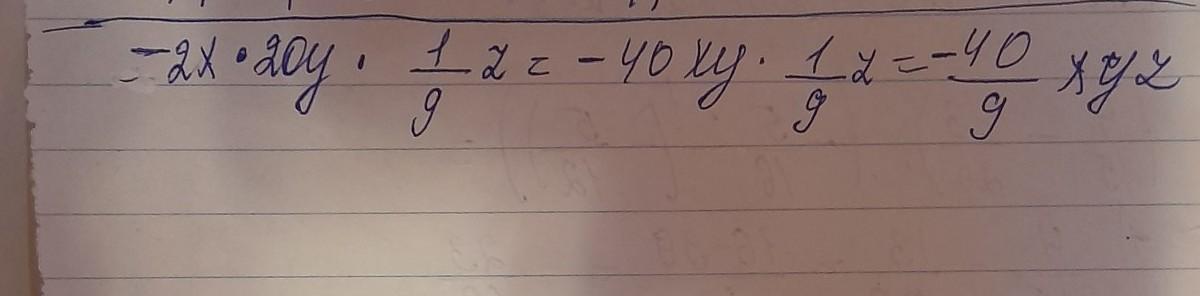 -2x · 20y · 1/9 z = -40xy · 1/9 z = -40/9 xyz